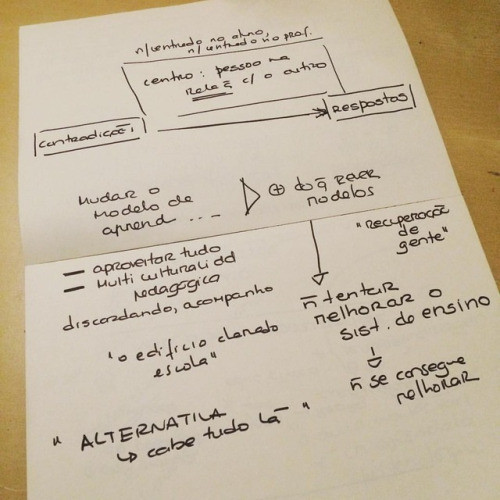 ñ/centrado no aluno,
ñ/centrado no prof.
centro: pessoa na
Relaç̃ c/o outro
contradição 1
RESPOSTAS
MUDAR O
MODELO DE
aprend ...
⊕ do q̃
modelos
"RECUPERAÇÃ
de
gente"
— aproveitar tudo
— Multiculturalidd
Pedagógica
discordando, acompanho
ñ tentar
melhorar o
sist. de ensino
"o edifício clamado
escola"
ñ se consegue
melhorar
" ALTERNATIVA
↳ cabe tudo lá "